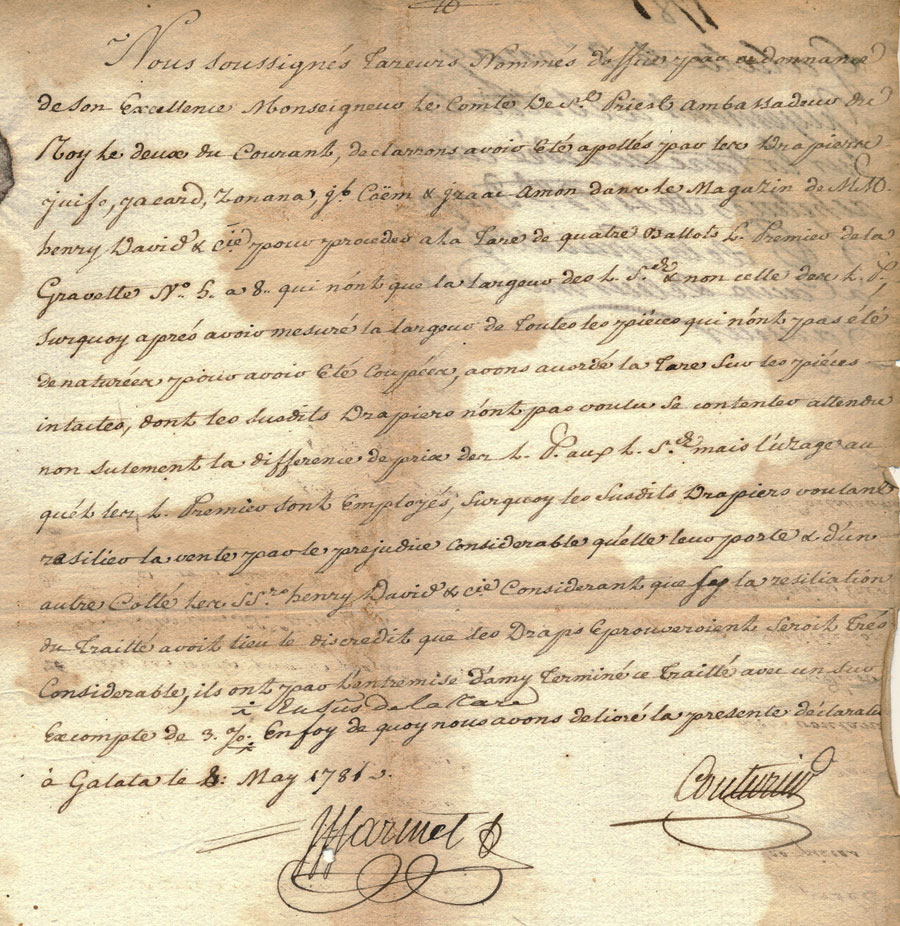 Nous soussignés Tareurs Nommés d'office par ordonnance
de son Excellence Monseigneur le Comte De St. Priest Ambassadeur du
Roy le deux du Courant, declarrons avoir Eté apellés par les Drapiers
juifs, jacard, Zonana, jb Coëm & jzaac Amon dans le Magazin de MM.
henry David & cie pour proceder a la Tare de quatre Ballots L. Premier de la
Gravette No. 5. a 8.. qui n'ont que la largeur des L. Sde & non celle des L. P.,
surquoy aprés avoir mesuré la largeur de Toutes les piéces qui n'ont pas eté
denaturées pour avoir Eté Coupées, avons acordé la Tare sur les piéces
intactes, dont les susdits Drapiers n'ont pas voulu se contenter attendu
non sulement la différence de prix des L. P. aux L. Sde mais l'uzage au
quél les L. Premier sont Employés, surquoy les susdits Drapiers voulant
resilier la vente par le prejudice Considerable quélle leur porte & d'un
autre Collé les SSrs henry David & cie Considerant que sy la resiliation
du Traillé avoit lieu le discredit que les Draps Eprouveroient seroit Trés
Considerable, ils ont par l'entremise d'amy Terminé ce Traillé avec un sur
x En sus de la Tare
Excompte de 3. %. x En foy de quoy nous avons deliuré la presente déclaraon
à Galata le 8: May 1781.
Couturier